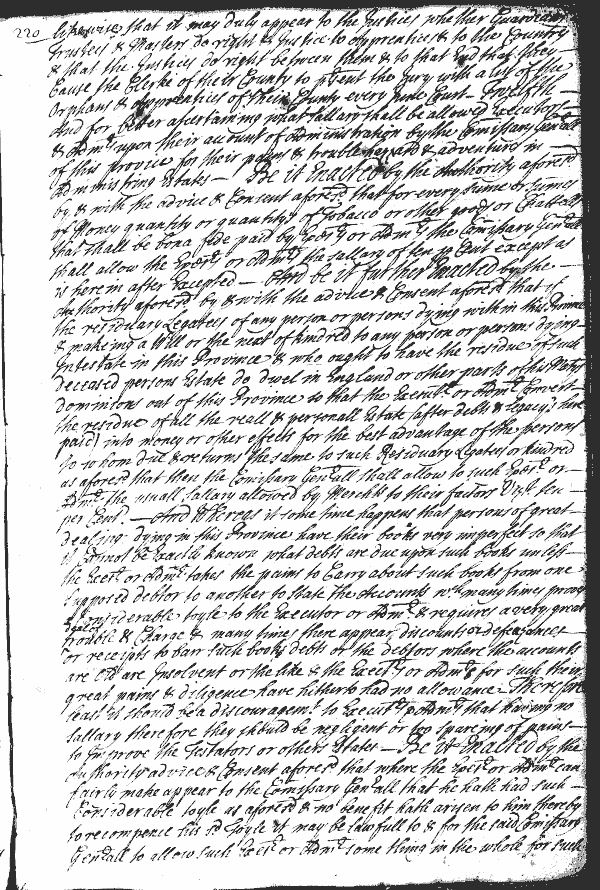 220 likewise that it may duly appear to the Justices whether Guardians
Trustees & Masters do right & Justice to apprentices & to the Country
& that the Justices do right between them & to that End that they
Cause the Clerke of their County to p'sent the Jury with a list of the
Orphans & apprentices of their County every June Court —
And for better ascertaining what sallary shall be allowed Executors
& Adm.rs upon their account of Administration by the Comissary Gen.all
of this provice for their pains & trouble hazard & adventure in
administring Estates — Be it Enacted by the Authority afores.d
by & with the advice & Consent afores.d that for every sume or sumes
of Money quantity or quantitys of Tobacco or other goods or Chattells
that shall be bona fide paid by Exec.rs or Adm.rs the Comissary Gen.all
shall allow the Exec.rs or Adm.rs the sallary of ten p Cent except as
is herein after Excepted — And be it further Enacted by the
Authority afores.d by & with the advice & Consent afores.d that if
the residuary Legatees of any person or persons dying within this Province
& making a Will or the next of kindred to any person or persons dying
Intestate in this Province & who ought to have the residue of such
deceased persons Estate do dwel in England or other parts of his Maj.tys
dominions out of this Province so that the Execut.r or Adm.r Convert
the residue of all the reall & personall Estate (after debts & legacys here
paid) into money or other effects for the best advantage of the persons
to whom due & returns the same to such Residuary Legatees or kindred
as aforesd that then the Comissary Gen.all shall allow to such Exec.r or
Adm.r the usuall sallary allowed by Merch.ts to their factors Viz.t ten
per Cent. — And Whereas it some time happens that persons of great
dealing dying in this Province have their books very imperfect so that
it cannot be Exactly known what debts are due upon such books unless
the Exec.r or Adm.r takes the pains to Carry about such books from one
supposed debtor to another to state the accounts w.ch many times proves
a considerable toyle to the Executor or Adm.r & requires a very great
trouble & Charge & many times there appear discounts or defeasances
or receipts to barr such books debt or the debtors where the accounts
are are Insolvent or the like & the Exec.r or Adm.r for such their
great pains & diligence have hitherto had no allowance. Therefore
least it should be a discouragem.t to Execut.rs or Adm.rs that having no
sallary therefore they should be negligent or too sparing of pains
to Improve the Testators or others Estates — Be it Enacted by the
Authority advice & Consent afores.d that where the Exec.r or Adm.r can
fairly make appear to the Comissary Gen.all that he hath had such
Considerable toyle as afores.d & no benefit hath arisen to him thereby
to recompence his s.d Toyle it may be lawfull to & for the said Comissary
Gen.all to allow such Exec.r or Adm.r some thing in the whole for such